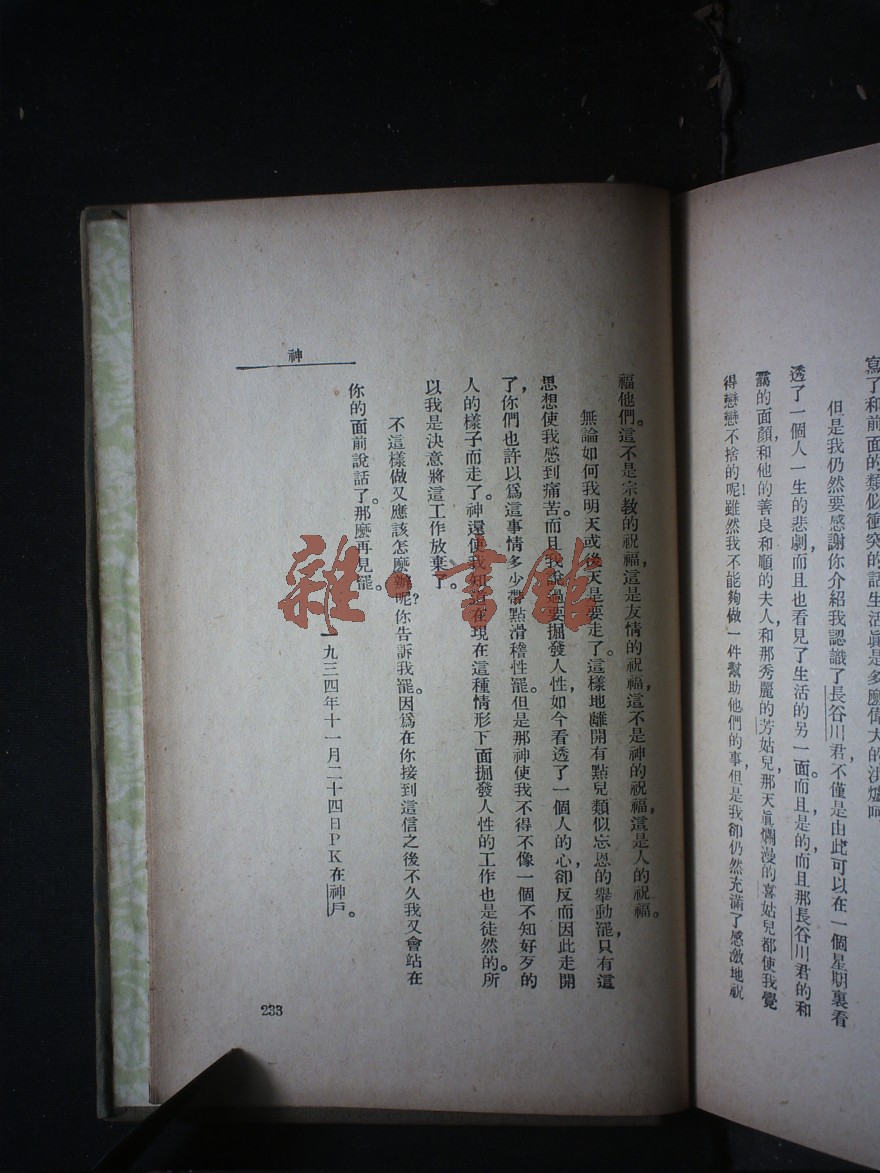 寫了和前面的類似衝突的話生活眞是多麼偉大的洪爐呵
但是我仍然要感謝你介紹我認識了長谷川君，不僅是由此可以在一個星期裏看
透了一個人一生的悲劇，而且也看見了生活的另一面。而且是的，而且那長谷川君的和
靄的面顏，和他的善良和順的夫人，和那秀麗的芳姑兒，那天眞爛漫的喜姑兒都使我覺
得戀戀不捨的呢！雖然我不能夠做一件幫助他們的事，但是我卻仍然充滿了感激地祝
福他們。這不是宗教的祝福，這是友情的祝福，這不是神的祝福，這是人的祝福。
無論如何我明天或後天是要走了。這樣地離開有點兒類似忘恩的舉動罷，只有這
思想使我感到痛苦。而且我說過要掘發人性，如今看透了一個人的心卻反而因此走開
了，你們也許以爲這事情多少帶點滑稽性罷。但是那神使我不得不像一個不知好歹的
人的樣子而走了。神還使我知道在現在這種情形下面掘發人性的工作也是徒然的。所
以我是決意將這工作放棄了。
不這樣做又應該怎麼辦呢？你告訴我罷。因爲在你接到這信之後不久我又會站在
你的面前說話了。那麼再見罷。
一九三四年十一月二十四日PK在神戶。
神
233
雜·書館